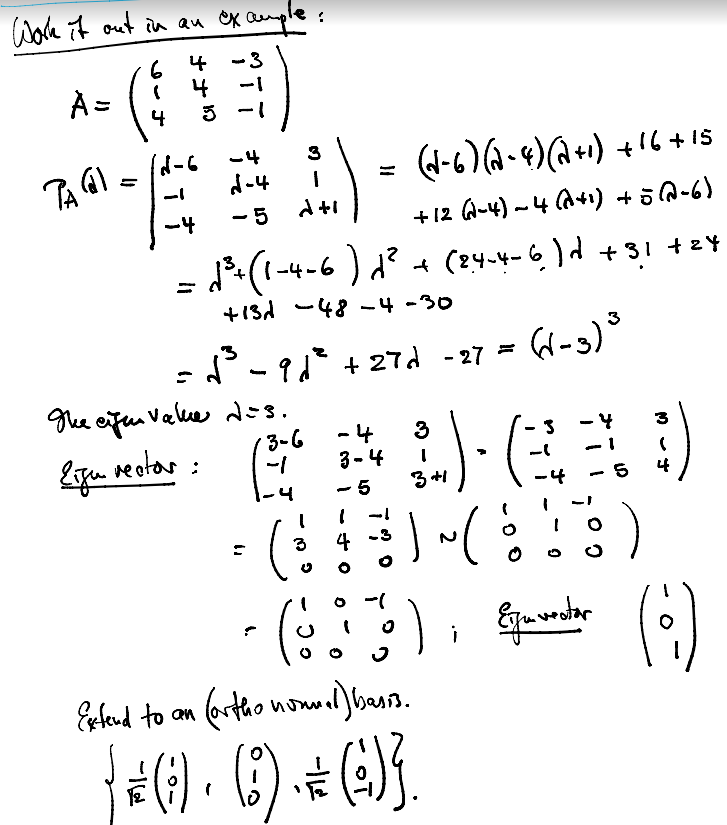 Work it out in an example :
A = ( 6 4 -3
1 4 -1
4 5 -1 )
P_A(λ) = | λ-6 -4 3
-1 λ-4 1
-4 -5 λ+1 | = (λ-6)(λ-4)(λ+1) +16 +15
+12(λ-4) -4(λ+1) +5(λ-6)
= λ³ + (1-4-6)λ² + (24-4-6)λ +31 +24
+13λ -48 -4 -30
= λ³ - 9λ² + 27λ - 27 = (λ-3)³
The eigenvalue λ=3.
Eigenvector : ( 3-6 -4 3
-1 3-4 1
-4 -5 3+1 ) = ( -3 -4 3
-1 -1 1
-4 -5 4 )
= ( 1 1 -1
3 4 -3
0 0 0 ) ~ ( 1 1 -1
0 1 0
0 0 0 )
= ( 1 0 -1
0 1 0
0 0 0 ) ; Eigenvector ( 1
0
1 )
Extend to an (orthonormal) basis.
{ 1/√2 ( 1 0 1 ) , ( 0 1 0 ) , 1/√2 ( 1 0 -1 ) } .